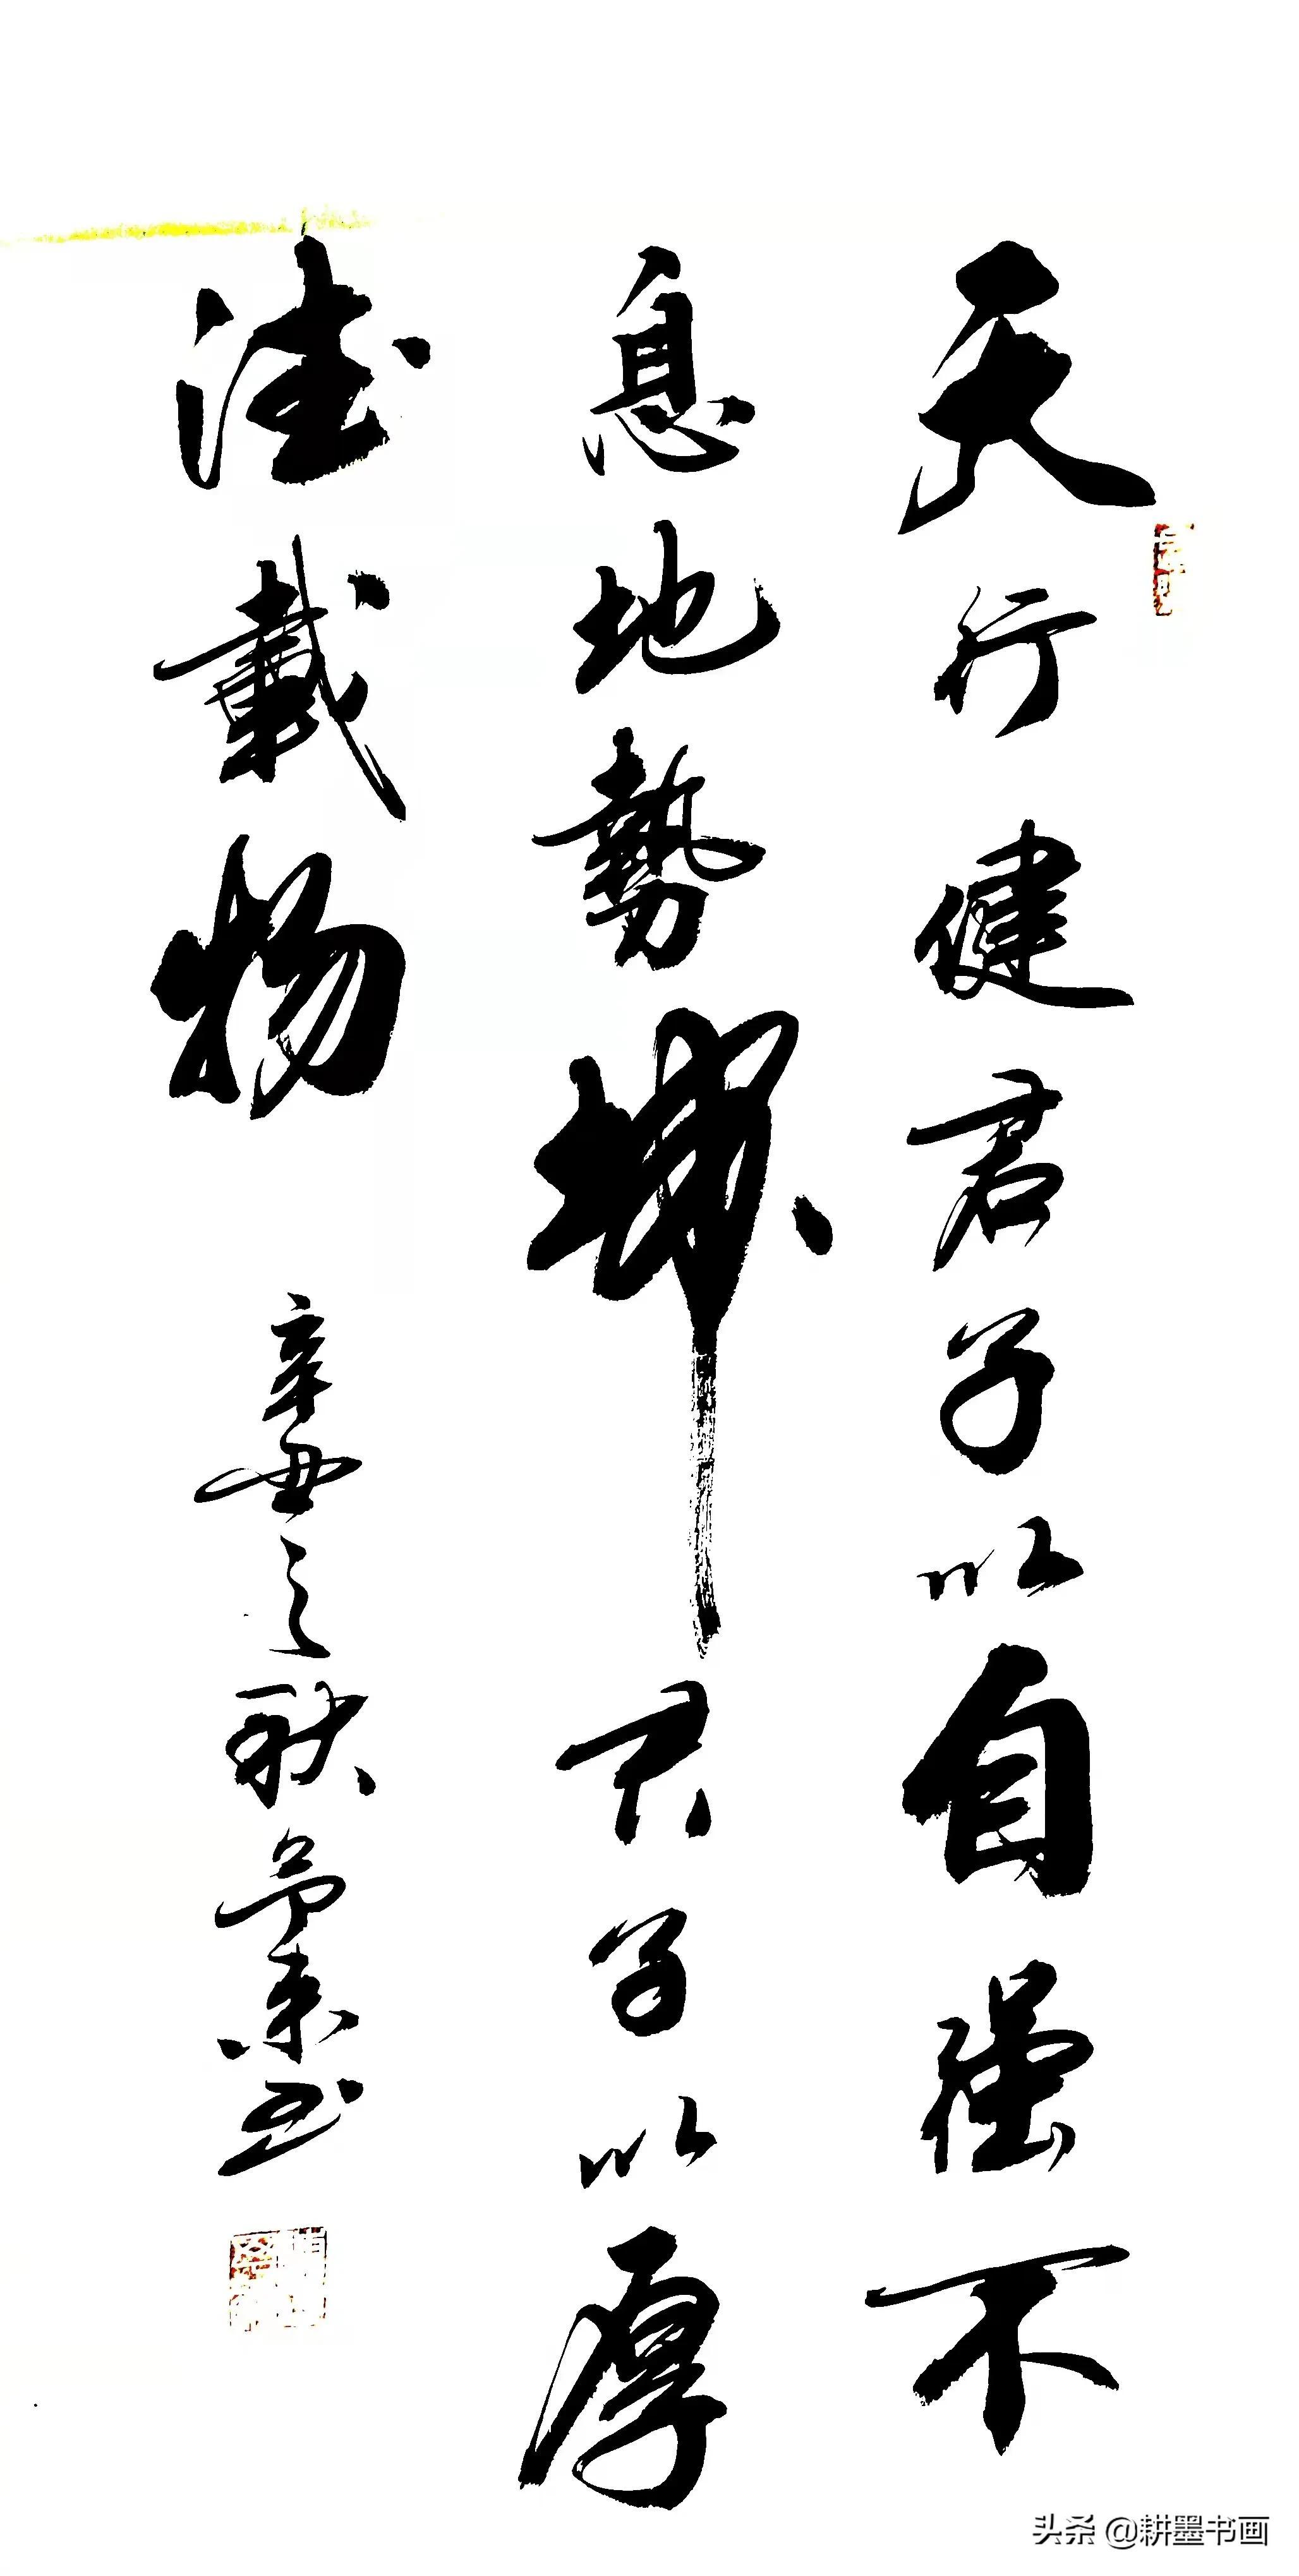 天行健君子以自强不
息地勢坤君子以厚
德載物
辛丑之秋 书
头条 @耕墨书画